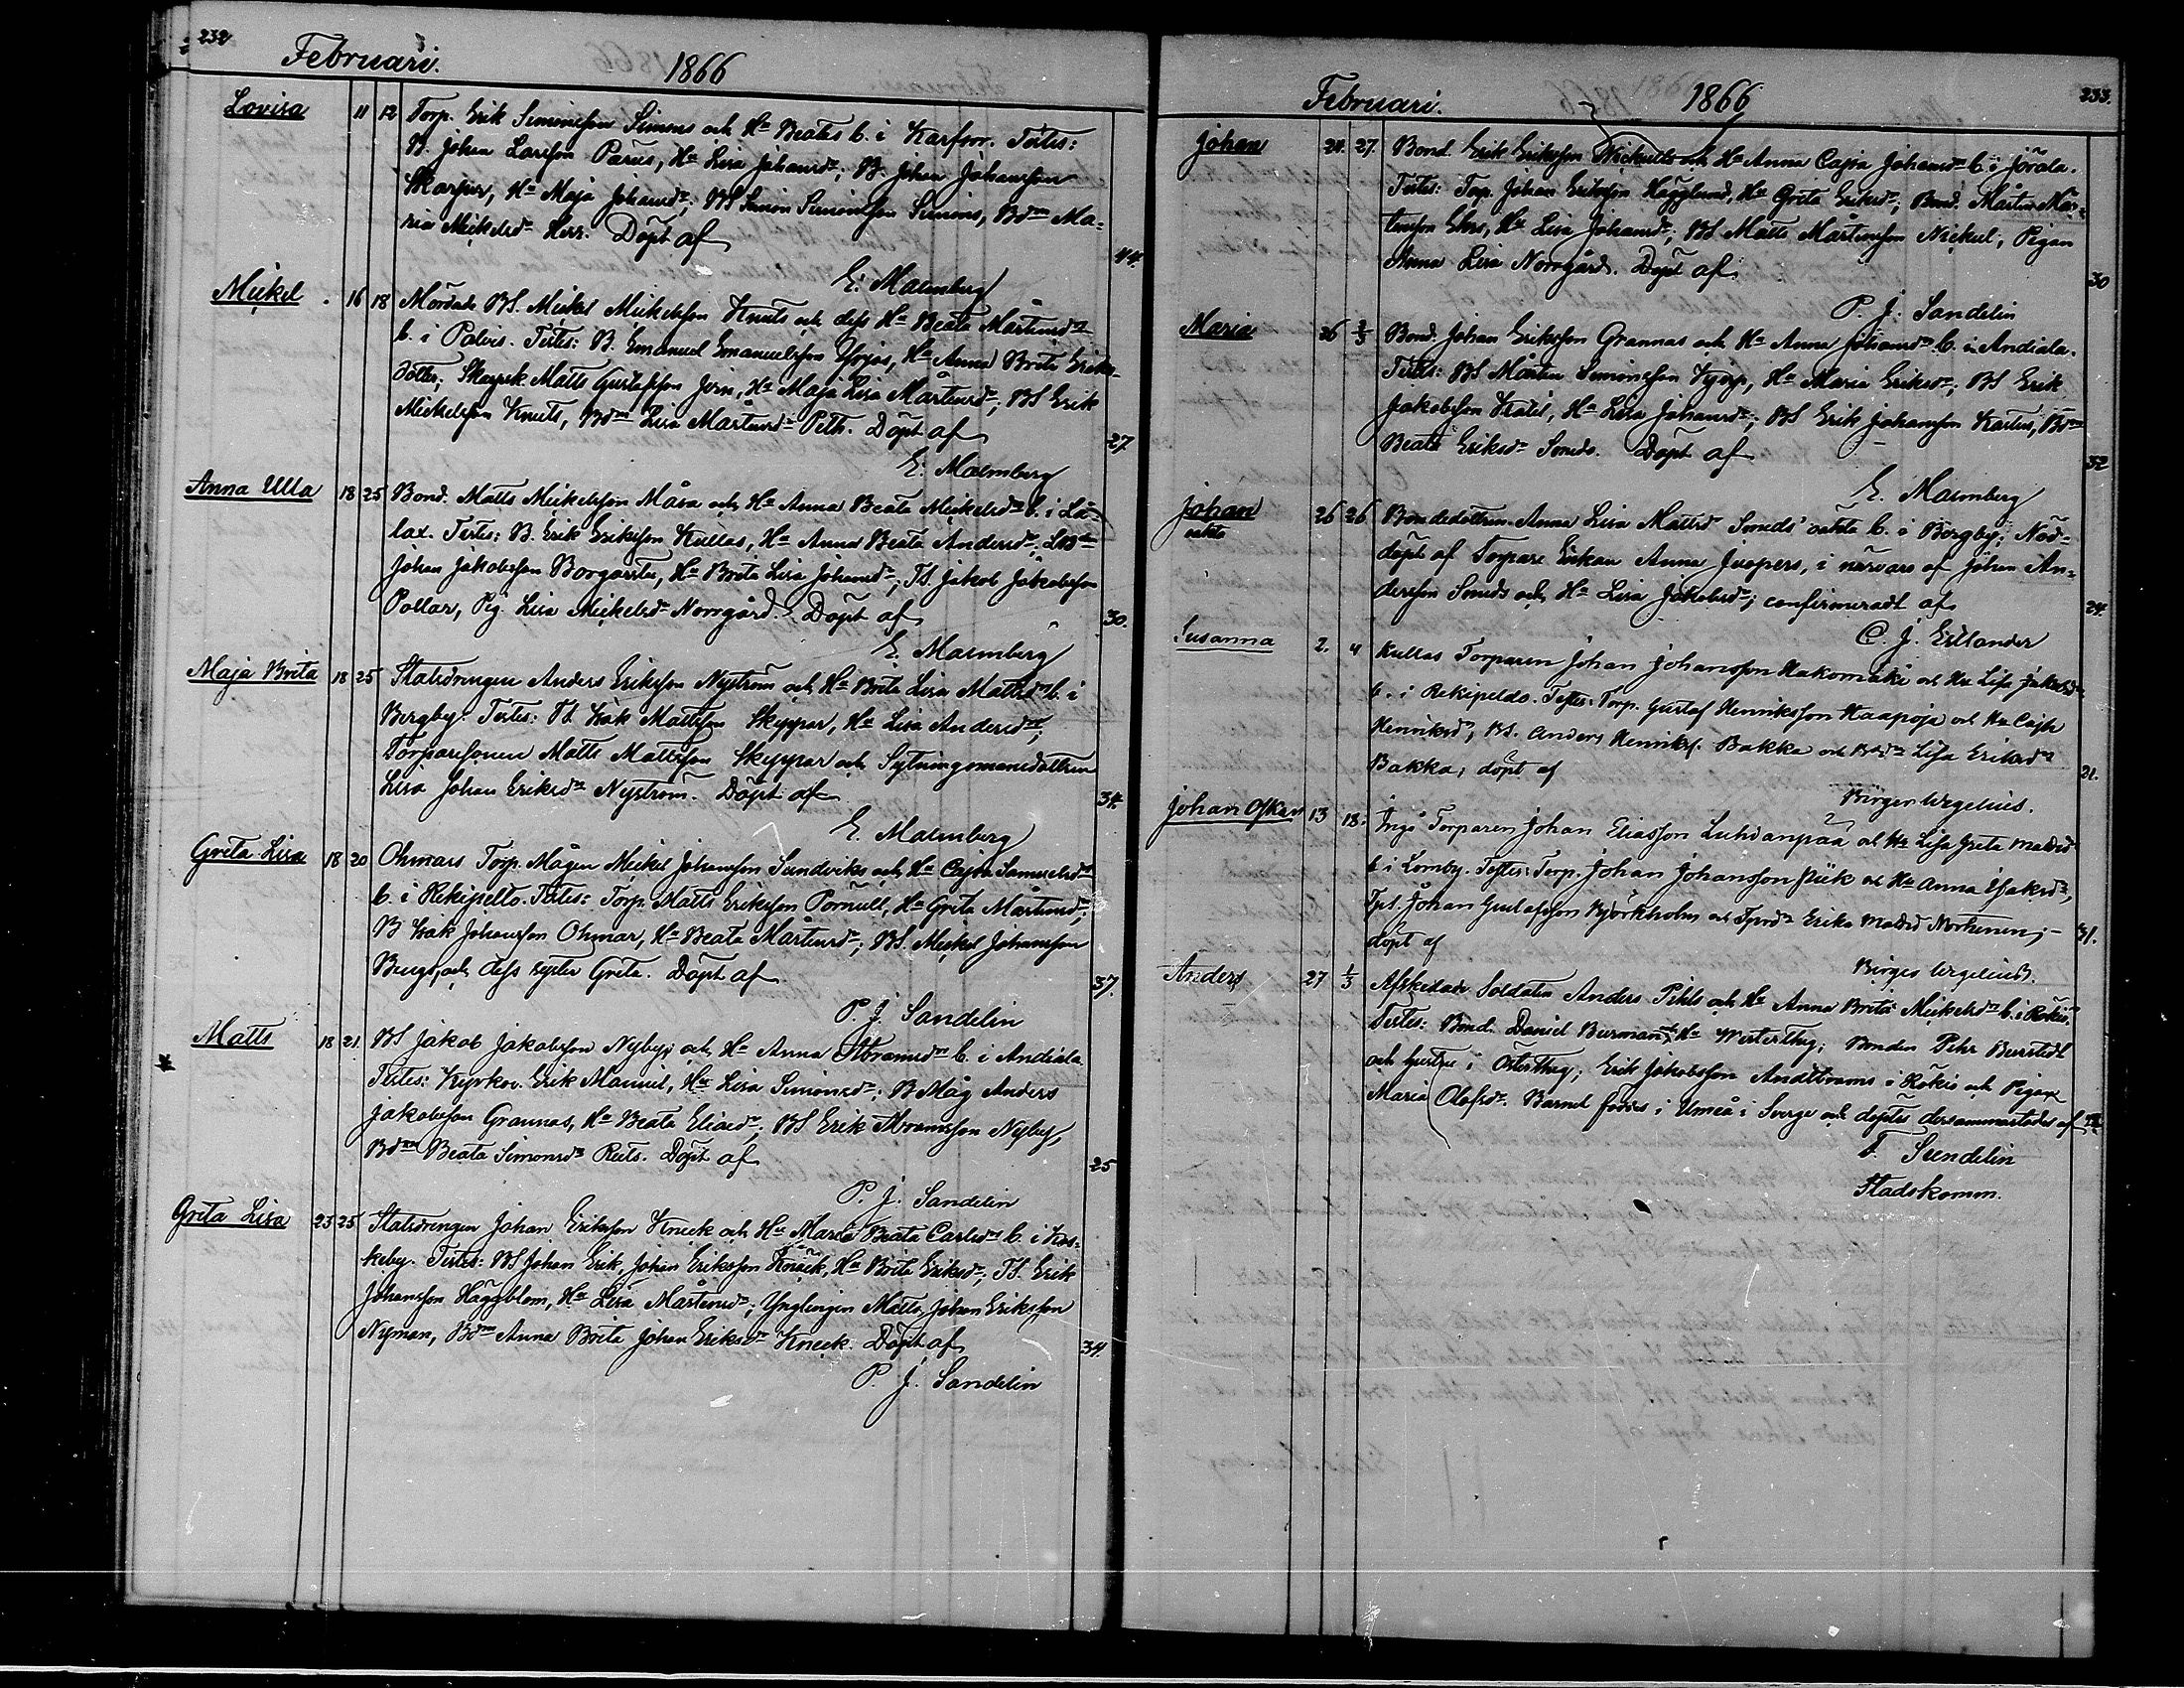 232
Februari. 1866
Lovisa 11 12 Torp. Erik Simonsson Simons och Hu Beatas b. i Karfsor. Testes:
B. Johan Larsson Parus, Hu Lisa Johansdr; B. Johan Johansson
Skarpus, Hu Maja Johansdr; BS Simon Simonsson Simons, Bdm Ma-
ria Mickelsdr Herr. Döpt af 44.
E. Malmberg
Mickel 16 18 Mördade BS. Mickel Mickelsson Knuts och dess Hu Beata Mårtensdr
b. i Palvis. Testes: B. Emanuel Emanuelsson, Hu Anna Brita Eriks-
dotter; Matts Gustafsson, Hu Maja Lisa Mårtensdr; BS Erik
Mickelsson Knuts, Bdm Lisa Mårtensdr Peth. Döpt af 27
E. Malmberg
Anna Ulla 18 25 Bond. Matts Mickelsson Måsa och Hu Anna Beata Mickelsdr b. i Lå-
lax. Testes: B. Erik Eriksson Kullas, Hu Anna Beata Andersdr;
Johan Jakobsson Borgarsta, Hu Brita Lisa Johansdr; TS. Jakob Jakobsson
Pollar, Pig. Lisa Mickelsdr Norrgård. Döpt af 30.
E. Malmberg
Maja Brita 18 25 Statsdrengen Anders Eriksson Nyström och Hu Brita Lisa Mattsdr b. i
Bergby. Testes: TS. Isak Mattsson Skeppar, Hu Lisa Andersdr;
Torparesonen Matts Mattsson Skeppar och Sytningsmansdottren
Lisa Johan Eriksdr Nyström. Döpt af 34.
E. Malmberg
Greta Lisa 18 20 Ohmars Torp. Mågen Mickel Johansson Sundviks och Hu Cajsa Samuelsdr
b. i Rekipelto. Testes: Torp. Matts Eriksson Pörnull, Hu Greta Mårtensdr;
B Isak Johansson Ohmar, Hu Beata Mårtensdr; BS. Mickel Johansson
Bengs, och dess syster Greta. Döpt af 37.
P. J. Sandelin
Matts 18 21. BS Jakob Jakobsson Nyby och Hu Anna Abramsdr b. i Andiala
Testes: Kyrkov. Erik Mannil, Hu Lisa Simonsdr; B Måg Anders
Jakobsson Grannas, Hu Beata Eliædr; BS Erik Abramsson Nyby,
Bdm Beata Simonsdr Ruts. Döpt af 25
P. J. Sandelin
Greta Lisa 23 25 Statsdrengen Johan Eriksson Kneck och Hu Maria Beata Carlsdr b. i Kos-
keby. Testes: BS Johan Erik Johan Eriksson Kneck, Hu Brita Eriksdr; TS. Erik
Johansson Häggblom, Hu Lisa Mårtensdr; Ynglingen Matts Johan Eriksson
Nyman, Bdm Anna Brita Johan Eriksdr Kneck. Döpt af 34.
P. J. Sandelin
Februari. 1866 233.
Johan 24. 27. Bond. Erik Eriksson Nickull och Hu Anna Cajsa Johansdr b. i Jörala.
Testes: Torp. Johan Eriksson Hägglund, Hu Greta Eriksdr; Bond. Mårten Mår-
tensson Ehrs, Hu Lisa Johansdr; BS Matts Mårtensson Nickul, Pigan
Anna Lisa Norrgård. Döpt af 30
P. J. Sandelin
Maria 26 2/3 Bond. Johan Eriksson Grannas och Hu Anna Johansdr b. i Andiala.
Testes: BS Mårten Simonsson Kjerp, Hu Maria Eriksdr; BS Erik
Jakobsson, Hu Lisa Johansdr; BS Erik Johansson Karlus, Bdm
Beata Eriksdr Smeds. Döpt af 32
E. Malmberg
Johan 26 26 Bondedottren Anna Lisa Mattsd Smeds' oäkta b. i Bergby; Nöd-
oäkta döpt af Torpare Enkan Anna Jespers, i närvaro af Johan An-
dersson Smeds och Hu Lisa Jakobsdr; confirmeradt af 24.
C. J. Estlander
Susanna 2. 4 Kullas Torparen Johan Johansson Hakomäki och Hu Lisa Jakobsdr
b. i Rekipeldo. Testes: Torp. Gustaf Henriksson Haapoja och Hu Cajsa
Henriksdr, BS. Anders Henrikss. Bakka och Bdr Lisa Eriksdr
Bakka; döpt af 21.
Birger Wegelius.
Johan Oskar 13 18. Ingo Torparen Johan Eliasson Luhdanpää och Hu Lisa Greta Mattsd
b. i Lomby. Testes: Torp. Johan Johansson Piik och Hu Anna Isaksdr,
Tps. Johan Gustafsson Björkholm och Tprdr Erika Mattsd; — 31.
döpt af
Birger Wegelius.
Anders 27 1/3 Afskedade Soldaten Anders Pihls och Hu Anna Brita Mickelsdr b. i Rökiö.
Testes: Bond. Daniel Burman & Hu Westertheg; Bonden Pehr Burstedt
och hustru i Österthag; Erik Jakobsson i Rökiö och Pigan
Maria Olofsdr. Barnet föddes i Umeå i Sverge och döptes dersammastädes af
F. Sundelin
Stadskomm.